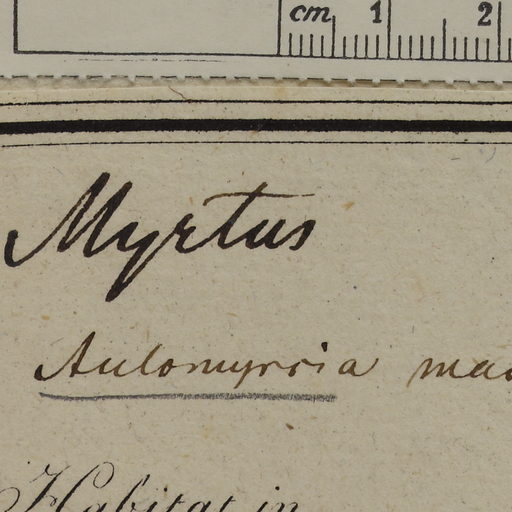 cm 1 2
Myrtus
Aulomyrcia
Habitat in